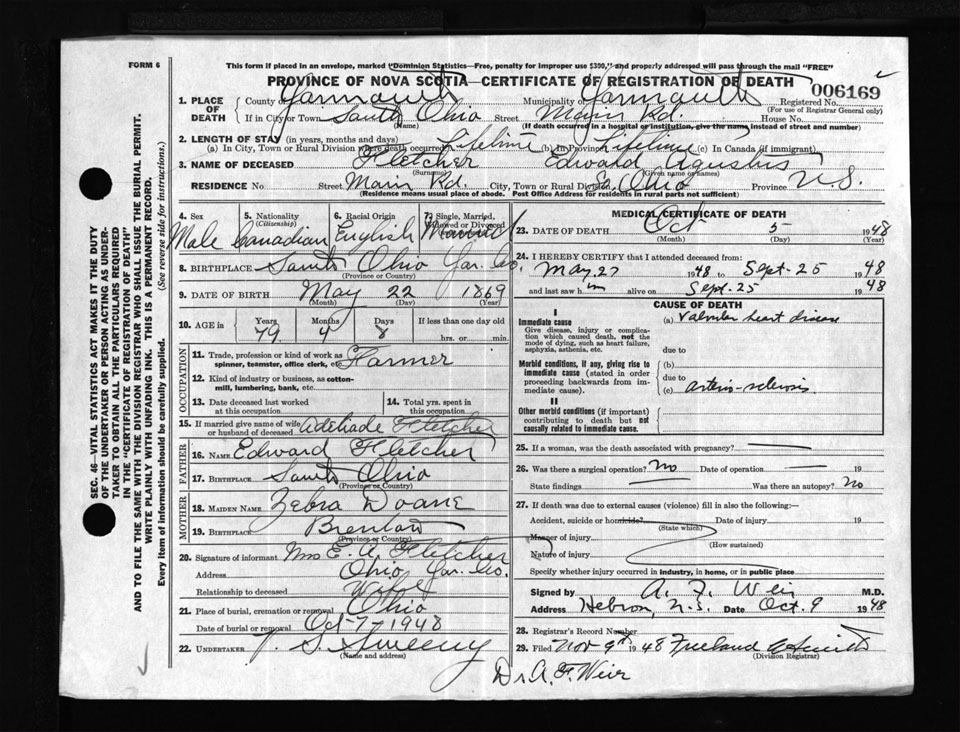 FORM 6
This form if placed in an envelope, marked "Dominion Statistics—Free, penalty for improper use $300," and properly addressed will pass through the mail "FREE"
PROVINCE OF NOVA SCOTIA—CERTIFICATE OF REGISTRATION OF DEATH
006169
1. PLACE OF DEATH County Yarmouth Municipality of Yarmouth Registered No.
(For use of Registrar General only)
If in City or Town South Ohio Street Main Rd. House No.
(Name) (If death occurred in a hospital or institution, give the name instead of street and number)
2. LENGTH OF STAY (in years, months and days)
(a) In City, Town or Rural Division where death occurred Lifetime (b) In Province Lifetime (c) In Canada (if immigrant)
3. NAME OF DECEASED Fletcher Edward Agustus
(Surname) (Given name or names)
RESIDENCE No Street Main Rd. City, Town or Rural Division So. Ohio Province N.S.
(Residence means usual place of abode. Post Office Address for residents in rural parts not sufficient)
4. Sex Male
5. Nationality (Citizenship) Canadian
6. Racial Origin English
7. Single, Married, Widowed or Divorced Married
8. BIRTHPLACE South Ohio Yar. Co.
(Province or Country)
9. DATE OF BIRTH May 22 1869
(Month) (Day) (Year)
10. AGE in Years Months Days If less than one day old
79 4 8 hrs. or min.
OCCUPATION
11. Trade, profession or kind of work as spinner, teamster, office clerk, etc. Farmer
12. Kind of industry or business, as cotton-mill, lumbering, bank, etc.
13. Date deceased last worked at this occupation
14. Total yrs. spent in this occupation
15. If married give name of wife or husband of deceased Adehade Fletcher
FATHER
16. NAME Edward Fletcher
17. BIRTHPLACE South Ohio
(Province or Country)
MOTHER
18. MAIDEN NAME Zebra Doane
19. BIRTHPLACE
(Province or Country)
20. Signature of informant Mrs E. A. Fletcher
Address Ohio Yar. Co.
Relationship to deceased Wife
21. Place of burial, cremation or removal Ohio
Date of burial or removal Oct-7-1948
22. UNDERTAKER V. S. Sweeny
(Name and address)
MEDICAL CERTIFICATE OF DEATH
23. DATE OF DEATH Oct 5 1948
(Month) (Day) (Year)
24. I HEREBY CERTIFY that I attended deceased from:
May, 27 1948 to Sept-25 1948
and last saw him alive on Sept. 25 1948
CAUSE OF DEATH
I
Immediate cause (a) Valvular heart disease
Give disease, injury or complication which caused death, not the mode of dying, such as heart failure, asphyxia, asthenia, etc.
due to
Morbid conditions, if any, giving rise to immediate cause (stated in order proceeding backwards from immediate cause).
(b)
due to
(c) arterio-sclerosis
II
Other morbid conditions (if important) contributing to death but not causally related to immediate cause.
25. If a woman, was the death associated with pregnancy?
26. Was there a surgical operation? No Date of operation 19
State findings Was there an autopsy? No
27. If death was due to external causes (violence) fill in also the following:—
Accident, suicide or homicide? Date of injury 19
(State which)
Manner of injury
(How sustained)
Nature of injury
Specify whether injury occurred in industry, in home, or in public place
Signed by A. F. Weir M.D.
Address Hebron, N.S. Date Oct. 9 1948
28. Registrar's Record Number
29. Filed Nov 9th 1948 Freeland
(Division Registrar)
Dr A. F. Weir
SEC. 46—VITAL STATISTICS ACT MAKES IT THE DUTY
OF THE UNDERTAKER OR PERSON ACTING AS UNDERTAKER TO OBTAIN ALL THE PARTICULARS REQUIRED
IN THE "CERTIFICATE OF REGISTRATION OF DEATH"
AND TO FILE THE SAME WITH THE DIVISION REGISTRAR WHO SHALL ISSUE THE BURIAL PERMIT.
WRITE PLAINLY WITH UNFADING INK. THIS IS A PERMANENT RECORD.
Every item of information should be carefully supplied. (See reverse side for instructions.)